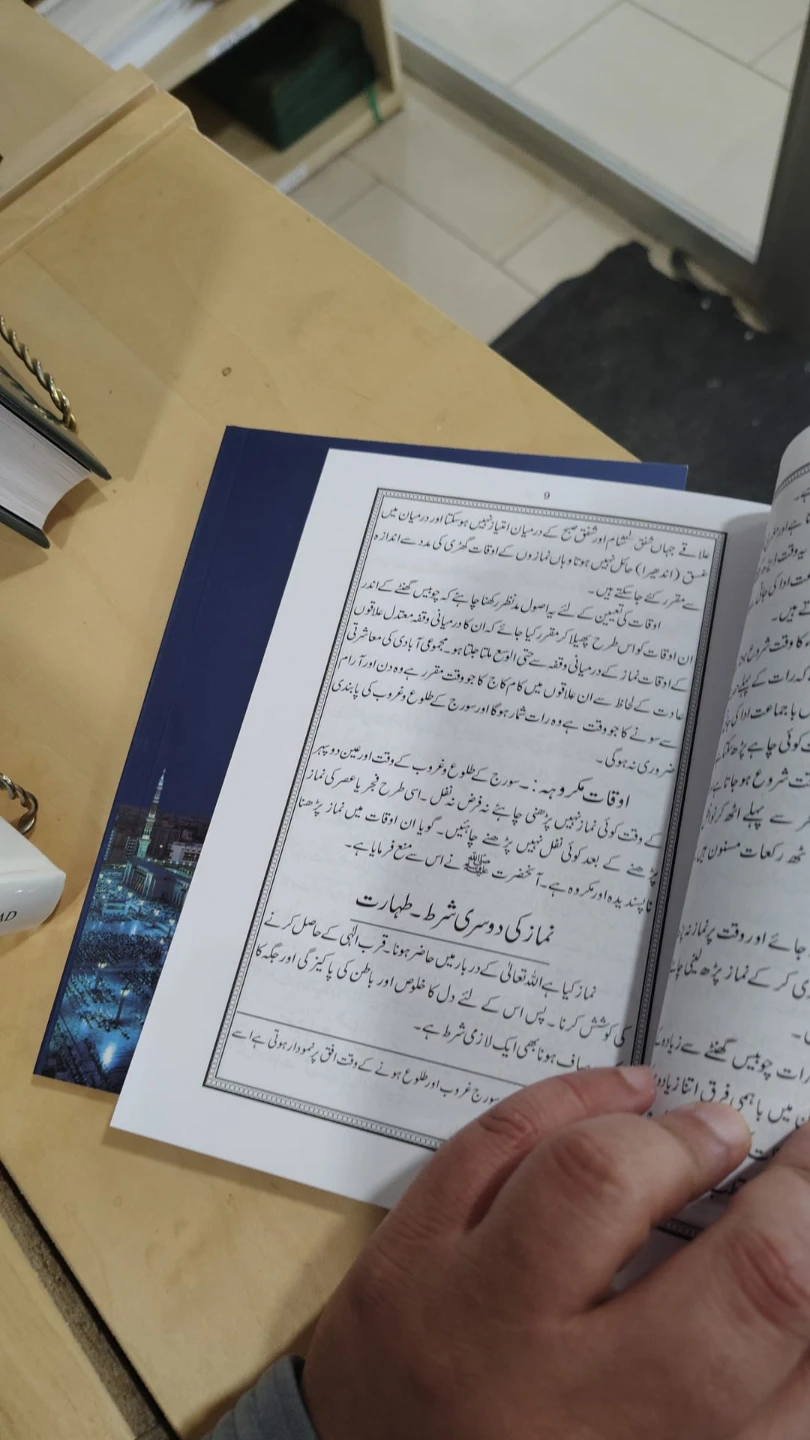 9
علاقے جہاں شفق شام اور شفق صبح کے درمیان امتیاز نہیں ہوسکتا اور درمیان میں
غسق (اندھیرا) حائل نہیں ہوتا وہاں نمازوں کے اوقات گھڑی کی مدد سے اندازہ
سے مقرر کئے جاسکتے ہیں۔
اوقات کی تعیین کے لئے یہ اصول مدنظر رکھنا چاہئے کہ چوبیس گھنٹے کے اندر
ان اوقات کو اس طرح پھیلا کر مقرر کیا جائے کہ ان کا درمیانی وقفہ معتدل علاقوں
کے اوقات نماز کے درمیانی وقفہ سے حتی الوسع ملتا جلتا ہو۔ مجموعی آبادی کی معاشرتی
عادت کے لحاظ سے ان علاقوں میں کام کاج کا جو وقت مقرر ہے وہ دن اور آرام
سے سونے کا جو وقت ہے وہ رات شمار ہوگا اور سورج کے طلوع وغروب کی پابندی
ضروری نہ ہوگی۔
اوقات مکروہہ :۔ سورج کے طلوع وغروب کے وقت اور عین دوپہر
کے وقت کوئی نماز نہیں پڑھنی چاہئے نہ فرض نہ نفل۔ اسی طرح فجر یا عصر کی نماز
پڑھنے کے بعد کوئی نفل نہیں پڑھنے چاہئیں۔ گویا ان اوقات میں نماز پڑھنا
ناپسندیدہ اور مکروہ ہے۔ آنحضرت ﷺ نے اس سے منع فرمایا ہے۔
نماز کی دوسری شرط۔ طہارت
نماز کیا ہے اللہ تعالیٰ کے دربار میں حاضر ہونا۔ قرب الٰہی کے حاصل کرنے
کی کوشش کرنا۔ پس اس کے لئے دل کا خلوص اور باطن کی پاکیزگی اور جگہ کا
صاف ہونا بھی ایک لازمی شرط ہے۔
سورج غروب اور طلوع ہونے کے وقت افق پر نمودار ہوتی ہے اسے
کا وقت شروع
کہ رات کے پہلے
با جماعت ادا کی
کوئی چاہے پڑھ سکتا
شروع ہو جاتا ہے
سے پہلے اٹھ کر نوافل
رکعات مسنون ہیں
جائے اور وقت پر نماز نہ
کر کے نماز پڑھ لینی
رات چوبیس گھنٹے سے زیادہ
میں باہمی فرق اتنا زیادہ
AD